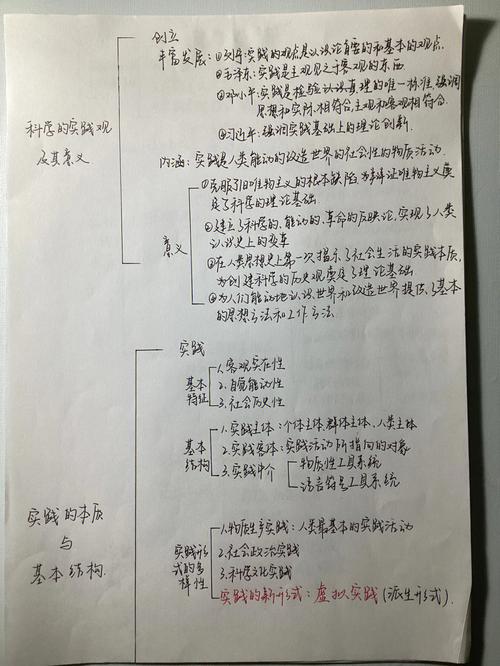 科学的实践观
及其意义
创立
丰富发展：①列宁：实践的观点是认识论首要的和基本的观点。
②毛泽东：实践是主观见之于客观的东西
③邓小平：实践是检验认识真理的唯一标准，强调
思想和实际相符合，主观和客观相符合.
④习近平：强调实践基础上的理论创新.
内涵：实践是人类能动的改造世界的社会性的物质活动.
意义
①克服了旧唯物主义的根本缺陷，为辩证唯物主义奠
定了科学的理论基础.
②建立了科学的、能动的、革命的反映论，实现了人类
认识史上的变革
③在人类思想史上第一次揭示了社会生活的实践本质,
为创建科学的历史观奠定了理论基础
④为人们能动地认识世界和改造世界提供了基本
的思想方法和工作方法.
实践的本质
与
基本结构.
实践
基本
特征
1.客观实在性
2.自觉能动性
3.社会历史性
基本
结构
1.实践主体：个体主体、群体主体、人类主体
2.实践客体：实践活动所指向的对象
3.实践中介
物质性工具系统
语言符号工具系统
实践形
式的多
样性
1.物质生产实践：人类最基本的实践活动
2.社会政治实践
3.科学文化实践
实践的新形式：虚拟实践(派生形式).